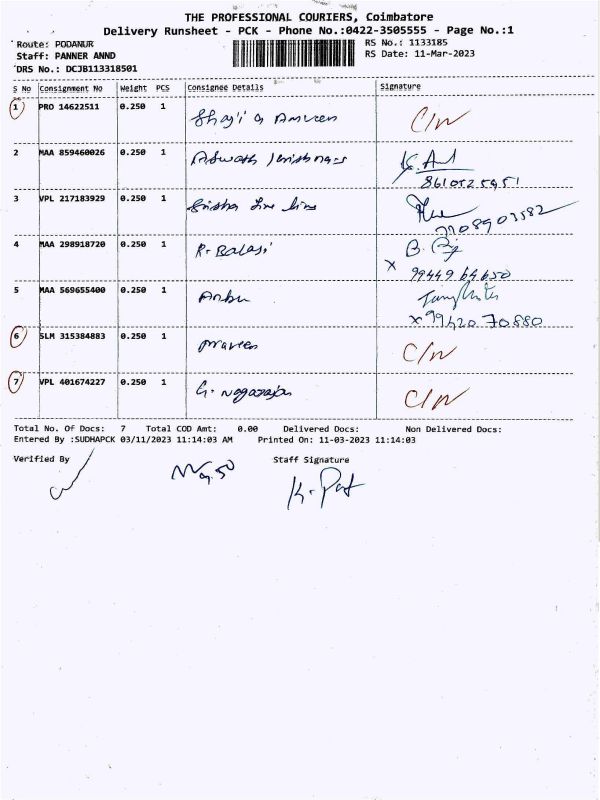 THE PROFESSIONAL COURIERS, Coimbatore
Delivery Runsheet - PCK - Phone No.:0422-3505555 - Page No.:1
Route: PODANUR
RS No.: 1133185
Staff: PANNER ANND
RS Date: 11-Mar-2023
DRS No.: DCJB113318501
S No Consignment No Weight PCS Consignee Details Signature
1 PRO 14622511 0.250 1 C/N
2 MAA 859460026 0.250 1
3 VPL 217183929 0.250 1
4 MAA 298918720 0.250 1 R. Balaji
99449 64650
5 MAA 569655400 0.250 1 Anbu
x 99420 70880
6 SLM 315384883 0.250 1 Praveen C/N
7 VPL 401674227 0.250 1 G. Nagarajan C/N
Total No. Of Docs: 7 Total COD Amt: 0.00 Delivered Docs: Non Delivered Docs:
Entered By :SUDHAPCK 03/11/2023 11:14:03 AM Printed On: 11-03-2023 11:14:03
Verified By Staff Signature